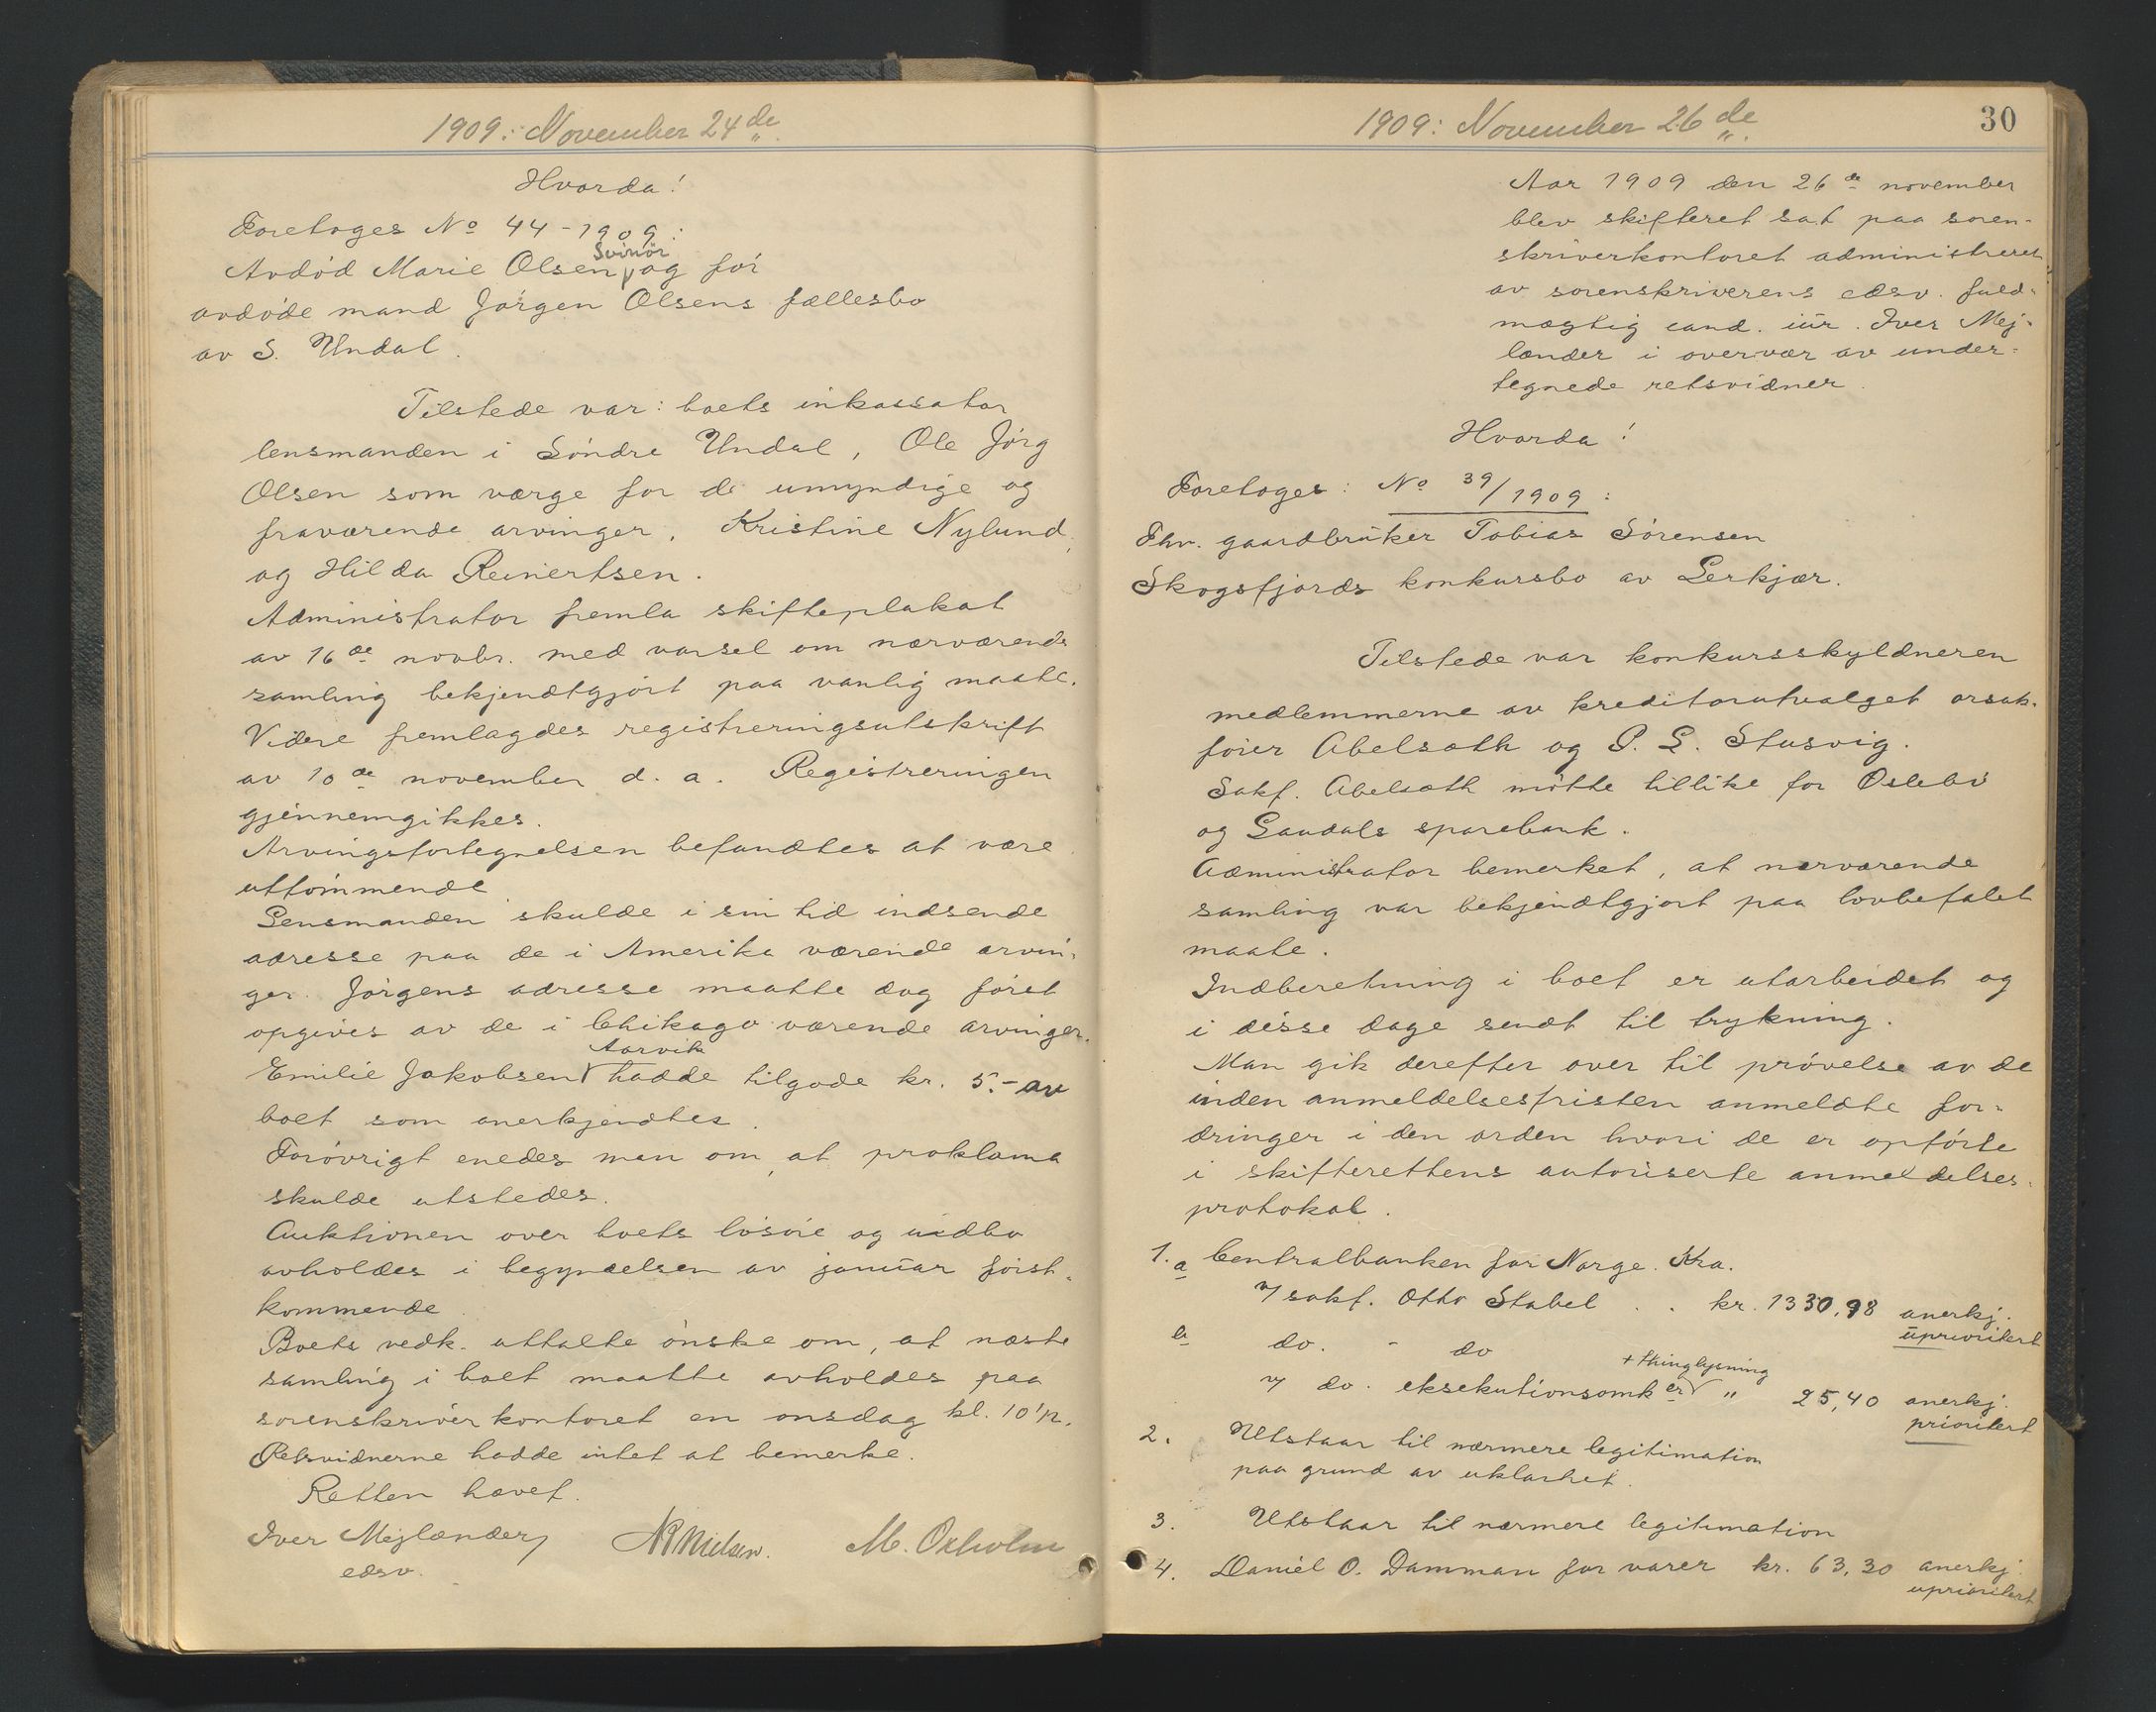 1909: November 24de
Hvorda!
Foretoges No 44-1909:
Svinör
Avdöd Marie Olsen og for
avdöde mand Jörgen Olsens fællesbo
av S. Undal.
Tilstede var: boets inkassator
lensmanden i Söndre Undal, Ole Jörg
Olsen som værge for de umyndige og
fraværende arvinger, Kristine Nylund,
og Hilda Reinertsen.
Administrator fremla skifteplakat
av 16de novbr. med varsel om nærværende
samling bekjendtgjört paa vanlig maate.
Videre fremlagdes registreringsutskrift
av 10de november d. a. Registreringen
gjennemgikkes.
Arvingsfortegnelsen befandtes at være
uttömmende
Lensmanden skulde i sin tid indsende
adresse paa de i Amerika værende arvin-
ger. Jörgens adresse maatte dog föret
opgives av de i Chikago værende arvinger.
Aarvik
Emilie Jakobsen hadde tilgode kr. 5.- av
boet som anerkjendtes.
Forövrigt enedes man om, at proklama
skulde utstedes.
Auktionen over boets lösöie og indbo
avholdes i begyndelsen av januar först-
kommende.
Boets vedk. uttalte önske om, at næste
samling i boet maatte avholdes paa
sorenskriverkontoret en onsdag kl. 10 1/2.
Retsvidnerne hadde intet at bemerke.
Retten hævet.
Iver Mejlænder NRNielsen. M. Oxholm
edsv.
1909: November 26de
30
Aar 1909 den 26de november
blev skifteret sat paa soren-
skriverkontoret administreret
av sorenskriverens edsv. fuld-
mægtig cand. iür. Iver Mej-
lænder i overvær av under-
tegnede retsvidner.
Hvorda!
Foretoges: No 39/1909:
Fhv. gaardbruker Tobias Sörensen
Skogsfjords konkursbo av Lerkjær.
Tilstede var konkursskyldneren
medlemmerne av kreditorutvalget orsak-
förer Abelsæth og P. L. Stusvig.
Sakf. Abelsæth mötte tillike for Öslebö
og Laudals sparebank.
Administrator bemerket, at nærværende
samling var bekjendtgjort paa lovbefalet
maate.
Indberetning i boet er utarbeidet og
i disse dage sendt til trykning.
Man gik derefter over til prövelse av de
inden anmeldelsesfristen anmeldte for-
dringer i den orden hvori de er opförte
i skifterettens autoriserte anmeldelses-
protokol.
1. a Centralbanken for Norge. Kra.
v/ sakf. Otto Stabel . . kr. 1330,98 anerkj.
uprioritert
b do. - do
+ thinglysning
v/ do. eksekutionsomker " 25,40 anerkj.
prioritert
2. Utstaar til nærmere legitimation
paa grund av uklarhet.
3. Utstaar til nærmere legitimation
4. Daniel O. Damman for varer kr. 63,30 anerkj.
uprioritert